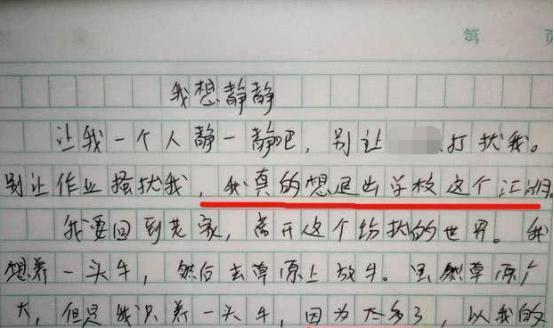 第 页
我想静静
让我一个人静一静吧，别让 打扰我。
别让作业骚扰我，我真的想退出学校这个江湖。
我要回到老家，离开这个纷扰的世界。我
想养一头牛，然后去草原上放牛。虽然草原广
大，但是我只养一头牛，因为太多了，以我的